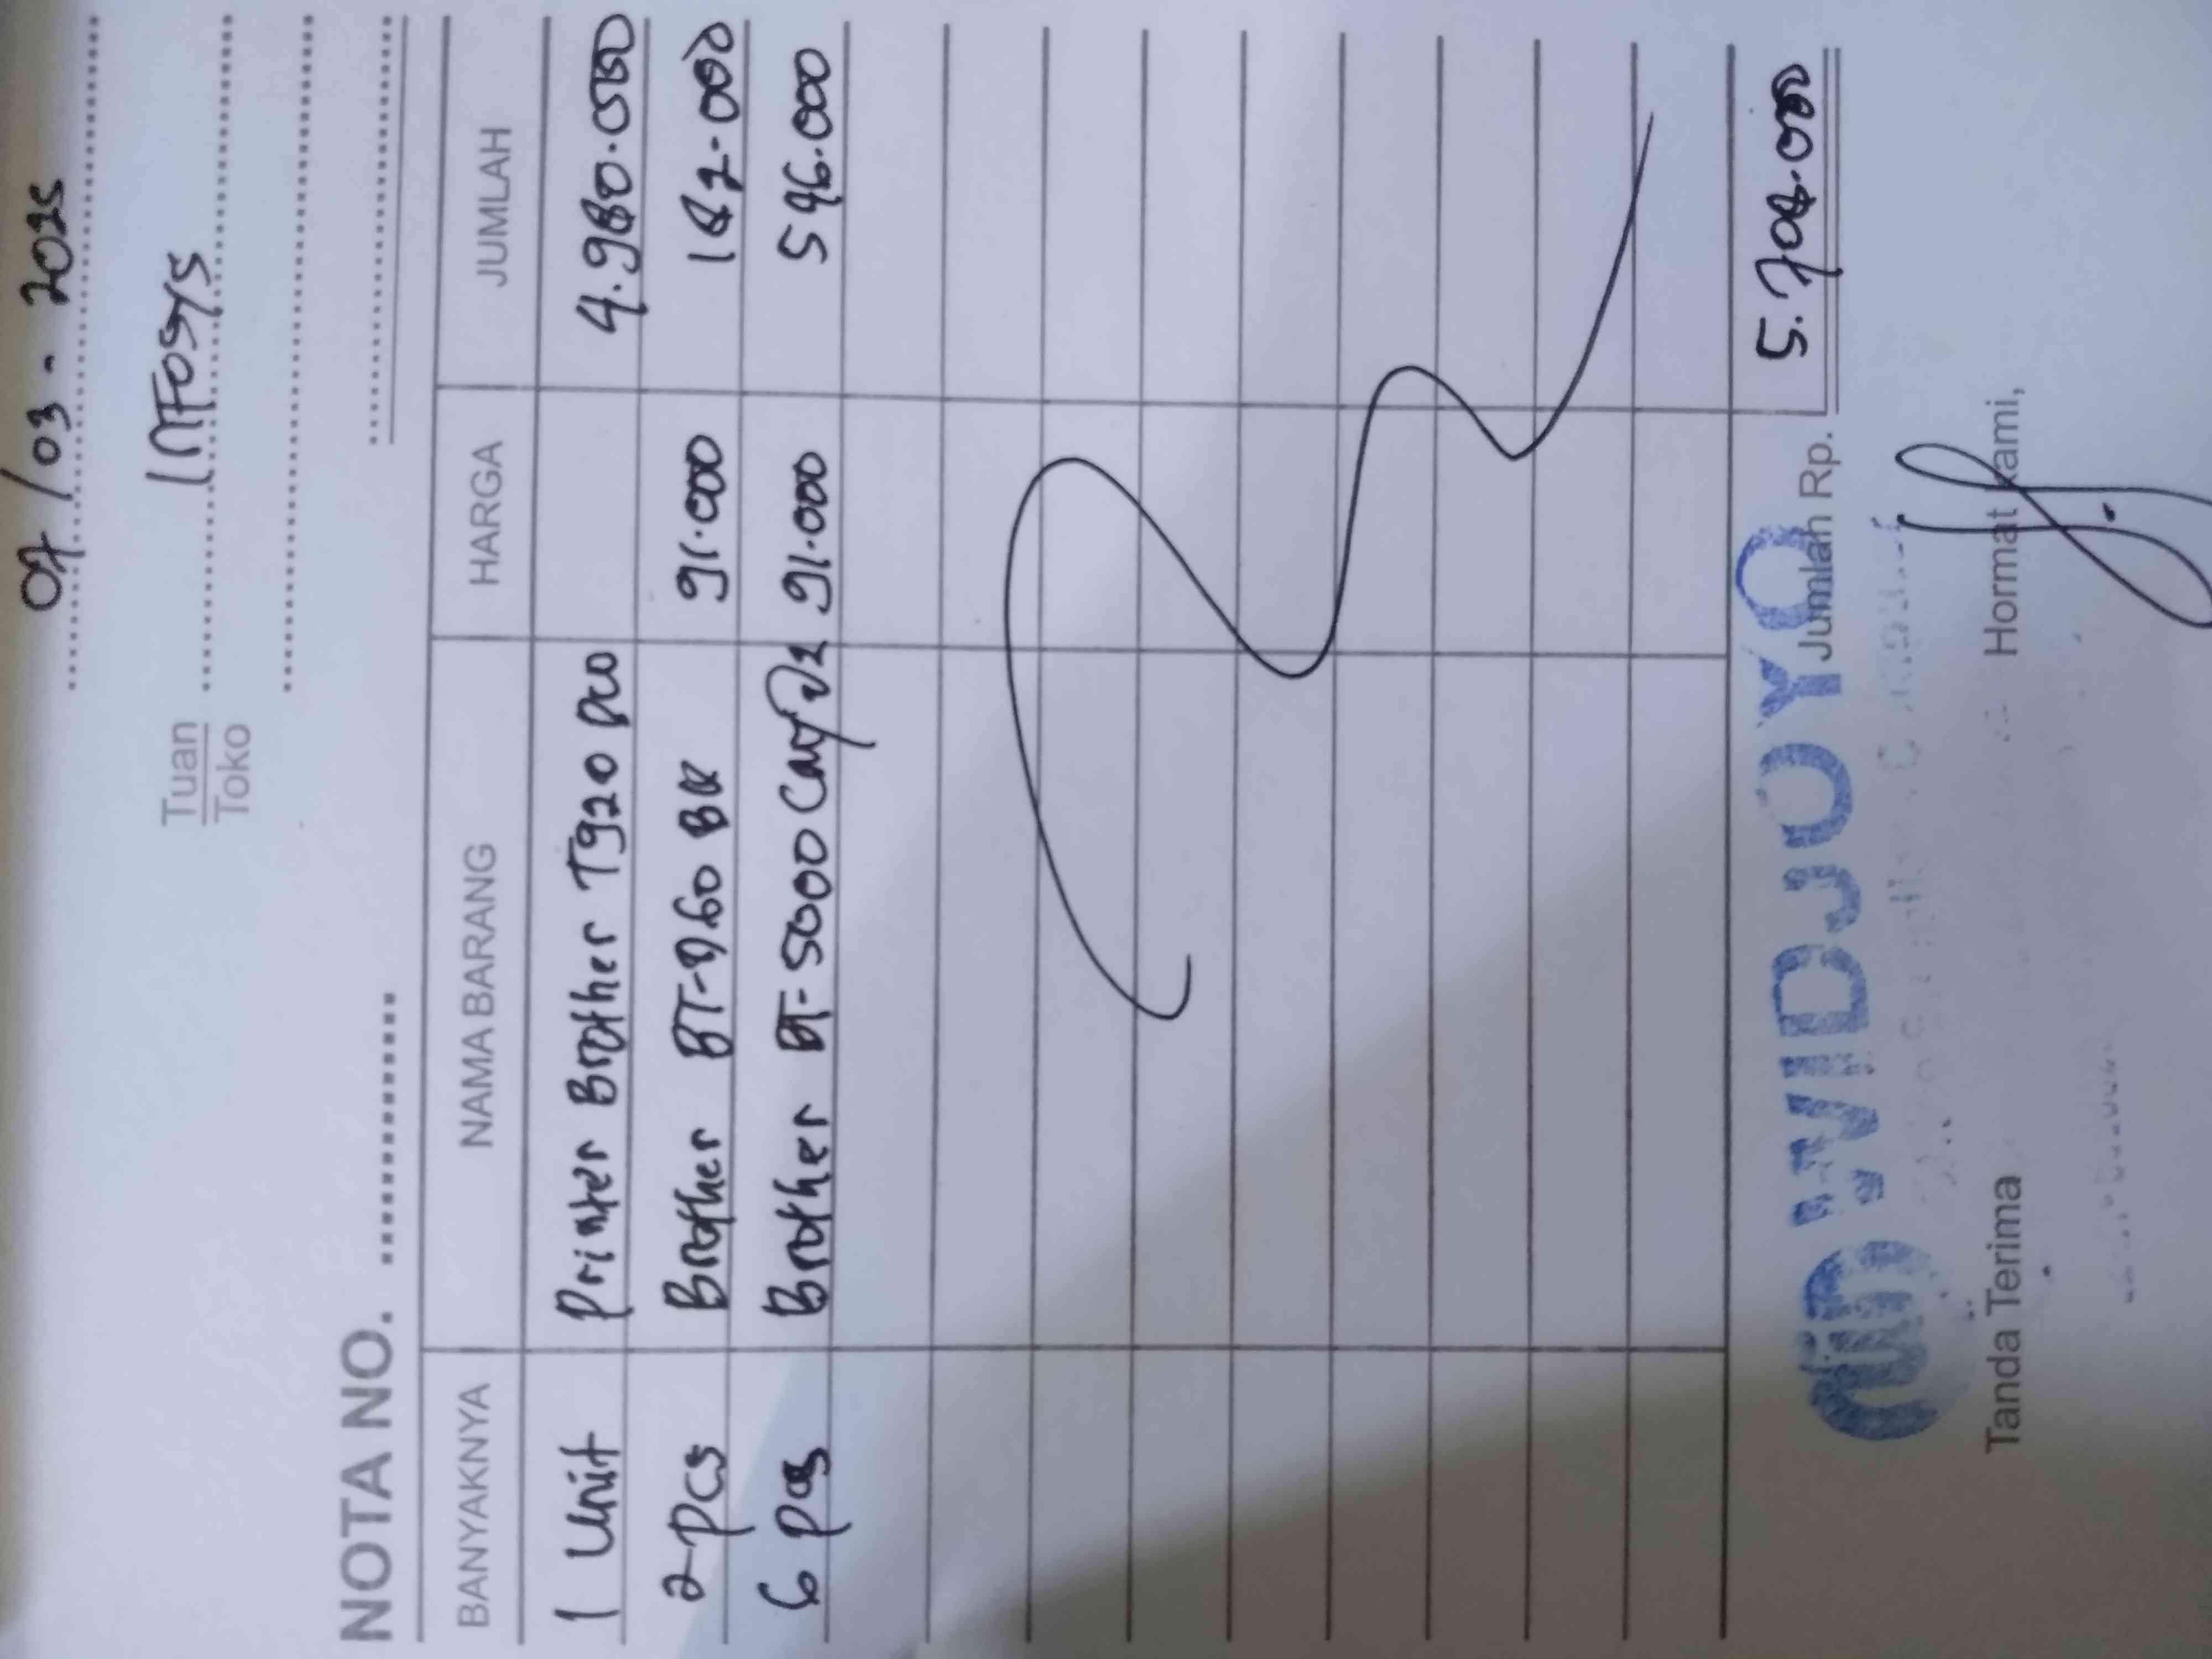 07/03-2025
Tuan
Toko
INFOSYS
NOTA NO.
BANYAKNYA NAMA BARANG HARGA JUMLAH
1 Unit Printer Brother T920 DW 4.980.000
2 pcs Brother BT-D60 BK 91.000
6 pcs Brother BT-5000 91.000 546.000
Jumlah Rp. 5.
WIDJOYO
Tanda Terima Hormat kami,